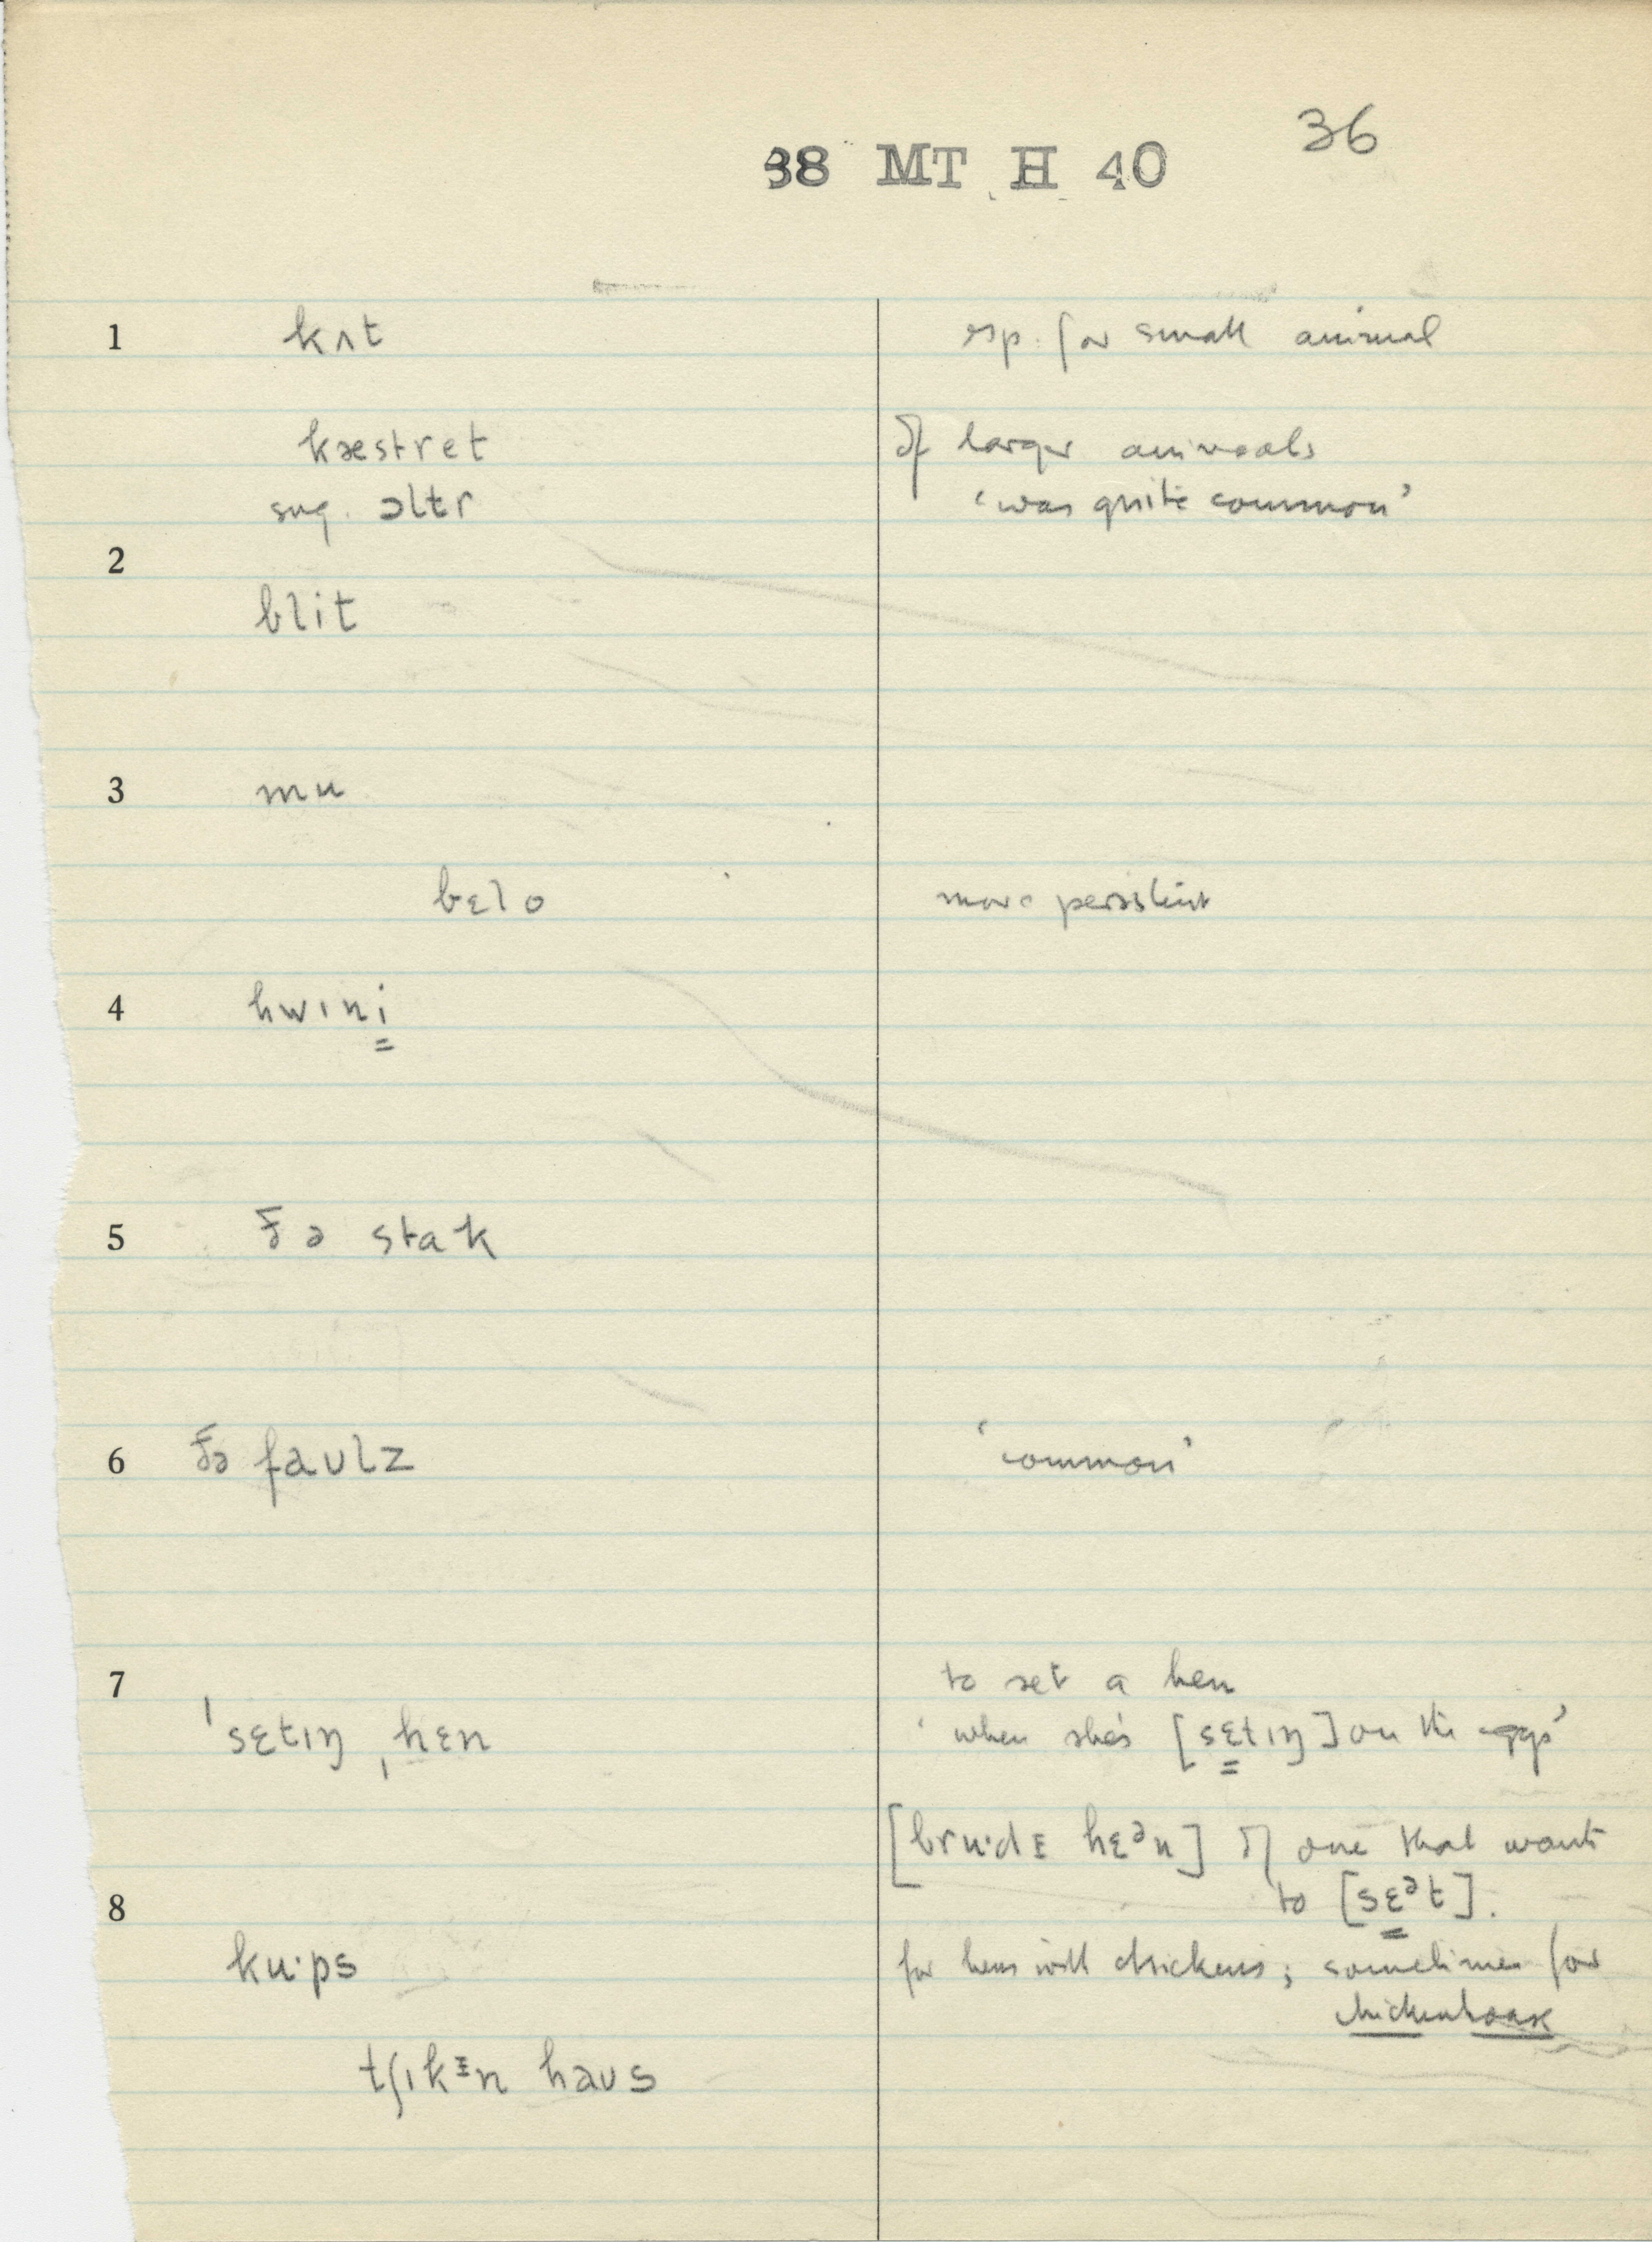 36
38 MT H 40
1 kʌt esp. for small animal
kæstret of larger animals
sug. ɔltr 'was quite common'
2
blit
3 mu
bɛlo more persistent
4 hwɪni
5 ðə stak
6 ðə faʊlz 'common'
7 to set a hen
ˈsɛtɪŋ ˌhɛn 'when she's [sɛtɪŋ] on the eggs'
[bru·dɪ hɛᵊn] of one that wants
8 to [sɛᵊt].
ku·ps for hens with chickens; sometimes for
chickenhouse
tʃɪkᵻn haʊs